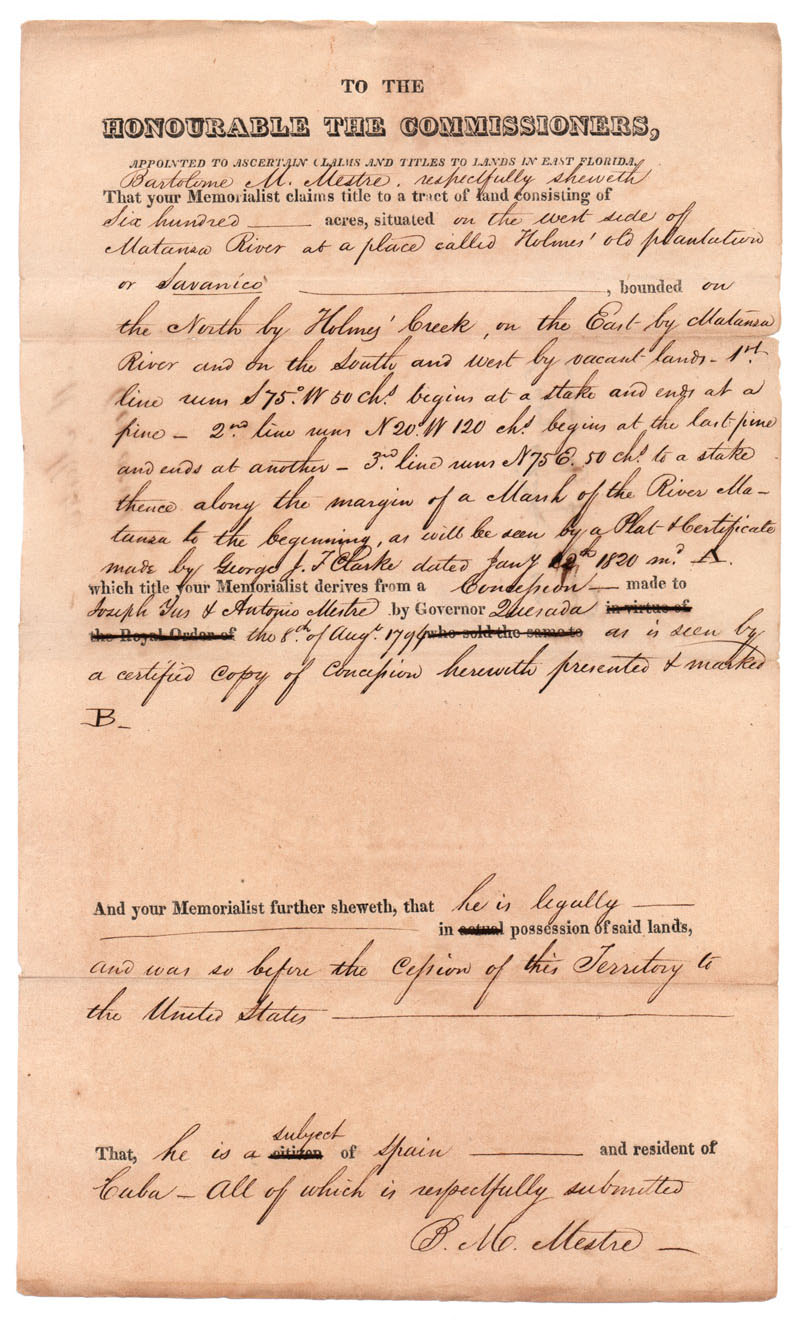 TO THE
HONOURABLE THE COMMISSIONERS,
APPOINTED TO ASCERTAIN CLAIMS AND TITLES TO LANDS IN EAST FLORIDA,
Bartolome M. Mestre, respectfully sheweth
That your Memorialist claims title to a tract of land consisting of
Six hundred acres, situated on the west side of
Matanza River at a place called Holmes' old plantation
or Savanico , bounded on
the North by Holmes' Creek, on the East by Matanza
River and on the South, and west by vacant lands - 1st
line runs S 75° W 50 chs. begins at a stake and ends at a
pine - 2nd line runs N 20° W 120 chs. begins at the last pine
and ends at another - 3rd line runs N 75 E. 50 chs. to a stake
thence along the margin of a Marsh of the River Ma-
tanza to the beginning, as will be seen by a Plat & Certificate
made by George J. F Clarke dated Jany 12th 1820 md. A.
which title your Memorialist derives from a Concession - made to
Joseph & Antonio Mestre by Governor Quesada in virtue of
the Royal Order of the 8th. of Augt. 1794 who sold the same to as is seen by
a certified copy of Concession herewith presented & marked
B -
And your Memorialist further sheweth, that he is legally
in actual possession of said lands,
and was so before the Cession of this Territory to
the United States
subject
That, he is a citizen of Spain and resident of
Cuba - All of which is respectfully submitted
B. M. Mestre -